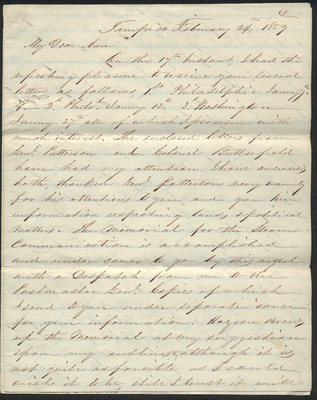 Tampico February 24th 1839
My Dear Ann
On the 17th Instant, I had the
refreshing pleasure to receive your several
letters as follows 1st Philadelphia January 7th
2. Philda January 12th 3. Washington
January 27th all of which I perused with
much interest. The enclosed letters from
Genl. Patterson and Colonel Butterfield
have had my attention. I have answered
both, thanked Genl. Patterson very warmly
for his attentions to you and gave him
information respecting lands & political
matters. The Memorial for the Steam
Communication is accomplished
and under cover to go by this
with a Despatch from me to the
Post master Genl. Copies of which
I send to you under separate cover
for your information. drew
up the Memorial at my suggestion
from my outlines, although it is
not quite as forcible as I could
wish it to be, still I trust it will